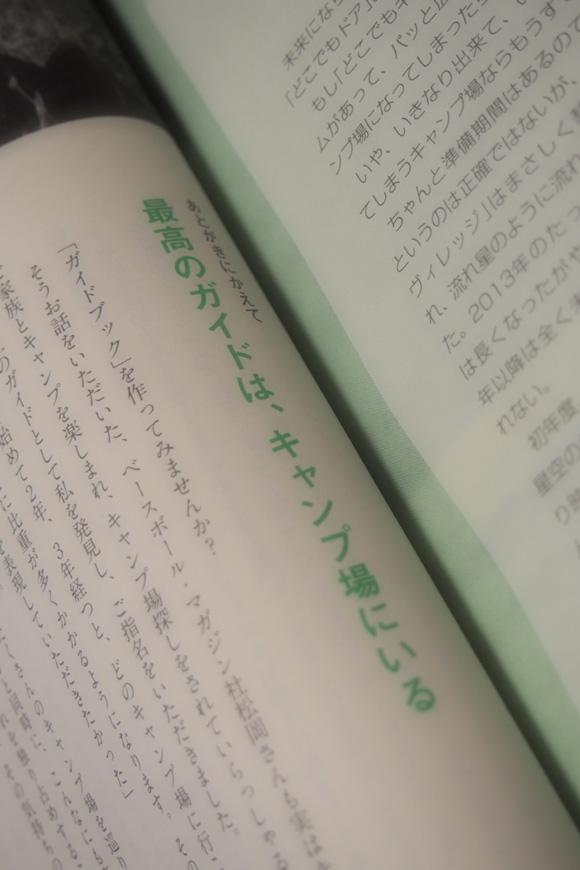 未来になら
「どこでもドア
もし「どこでもキ
ムがあって、パッと広
ンプ場になってしまったら
いや、いきなり出来て、い
てしまうキャンプ場ならもうす
ちゃんと準備期間はあるので
というのは正確ではないが、
ヴィレッジ」はまさしく
れ、流れ星のように流れ
た。2013年のたっ
は長くなったがや
年以降は全く未
れない。
初年度
星空の
り
あとがきにかえて
最高のガイドは、キャンプ場にいる
「ガイドブック」を作ってみませんか?
そうお話をいただいた、ベースボール・マガジン社松岡さんも実は
家族とキャンプを楽しまれ、キャンプ場探しをされていらっしゃる
のガイドとして私を発見し、ご指名をいただきました。
始めて2年、3年経つと、どのキャンプ場に行
に比重が多くかかるようになります。そ
を表現していただきたかった」
さんのキャンプ場を巡り
と同時に、こんなにも
れを独り占めする
その気持ちの